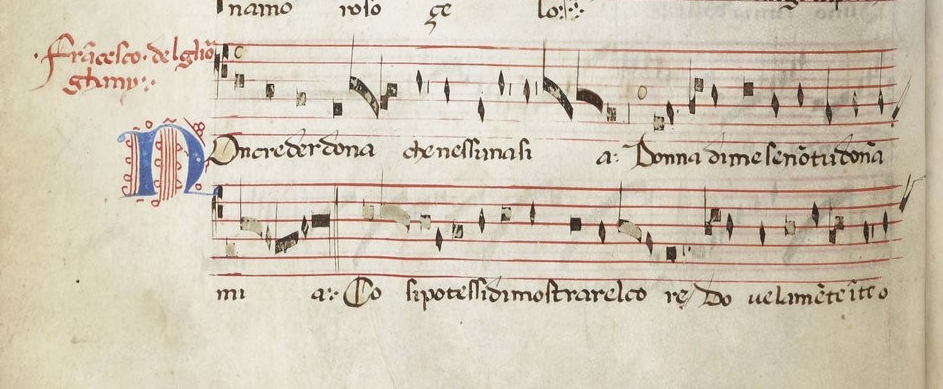 namo roso ge lo:
·Frācesco·delglio
ghany:
NOncrederdona chenessunasi a: Donna dime senōtu doña
mi a: Co sipotessidimostrarelco re Do uelamēte